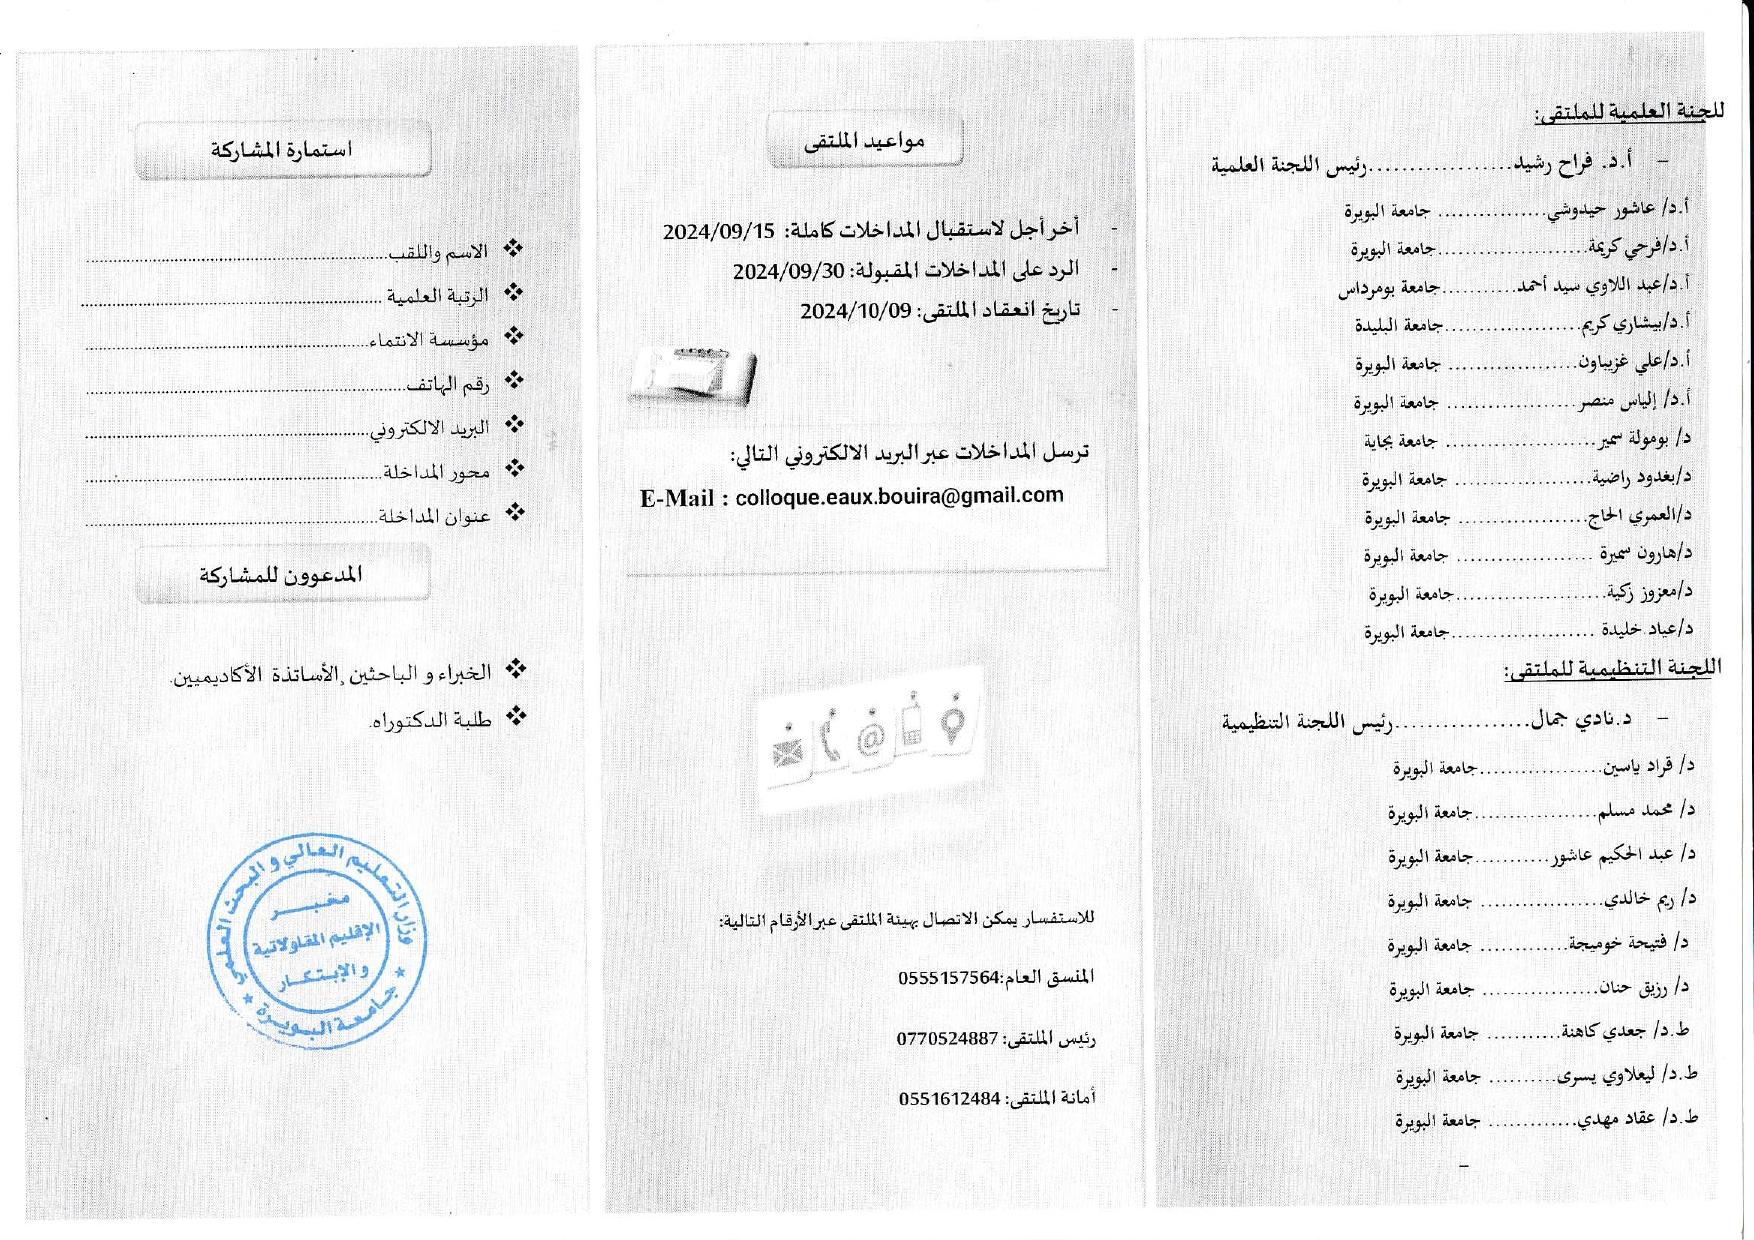 للجنة العلمية للملتقى:
- أ.د. فراح رشيد..................رئيس اللجنة العلمية
أ.د/ عاشور حيدوشي................ جامعة البويرة
أ.د/فرحي كريمة......................جامعة البويرة
أ.د/عبد اللاوي سيد أحمد...........جامعة بومرداس
أ.د/بيشاري كريم....................جامعة البليدة
أ.د/علي غزيباون................... جامعة البويرة
أ.د/ إلياس منصر................... جامعة البويرة
د/ بومولة سمير...................... جامعة بجاية
د/بغدود راضية.................... جامعة البويرة
د/العمري الحاج................... جامعة البويرة
د/هارون سميرة .................... جامعة البويرة
د/معزوز زكية......................جامعة البويرة
د/عياد خليدة .....................جامعة البويرة
اللجنة التنظيمية للملتقى:
- د.نادي جمال.................رئيس اللجنة التنظيمية
د/ قراد ياسين..................جامعة البويرة
د/ محمد مسلم..................جامعة البويرة
د/ عبد الحكيم عاشور...........جامعة البويرة
د/ ريم خالدي.................. جامعة البويرة
د/ فتيحة خوميجة............. جامعة البويرة
د/ رزيق حنان................. جامعة البويرة
ط.د/ جعدي كاهنة........... جامعة البويرة
ط.د/ ليعلاوي يسرى.......... جامعة البويرة
ط.د/ عقاد مهدي............. جامعة البويرة
–
مواعيد الملتقى
- أخر أجل لاستقبال المداخلات كاملة: 2024/09/15
- الرد على المداخلات المقبولة: 2024/09/30
- تاريخ انعقاد الملتقى: 2024/10/09
ترسل المداخلات عبر البريد الالكتروني التالي:
E-Mail : colloque.eaux.bouira@gmail.com
للاستفسار يمكن الاتصال بهيئة الملتقى عبر الأرقام التالية:
المنسق العام:0555157564
رئيس الملتقى: 0770524887
أمانة الملتقى: 0551612484
استمارة المشاركة
❖ الاسم واللقب................................................
❖ الرتبة العلمية ................................................
❖ مؤسسة الانتماء................................................
❖ رقم الهاتف................................................
❖ البريد الالكتروني................................................
❖ محور المداخلة................................................
❖ عنوان المداخلة................................................
المدعوون للمشاركة
❖ الخبراء و الباحثين ,الأساتذة الأكاديميين.
❖ طلبة الدكتوراه.
وزارة التعليم العالي و البحث العلمي
مخبر
الإقليم المقاولاتية
والإبتكار
* جامعة البويرة *